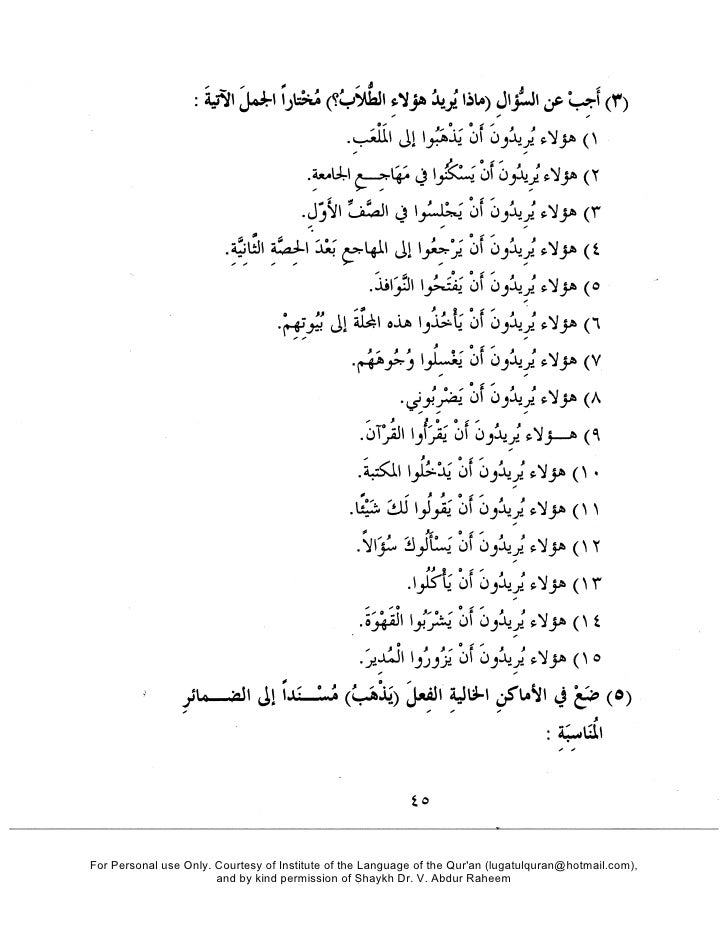 (٣) أَجِبْ عن السُّؤالِ (ماذا يُرِيدُ هؤلاءِ الطُّلاَّبُ؟) مُخْتاراً الجملَ الآتيةَ :
١) هؤلاء يُرِيدُونَ أَنْ يَذْهَبُوا إلى المَلْعَبِ.
٢) هؤلاء يُرِيدُونَ أَنْ يَسْكُنُوا في مَهَاجِــعِ الجامعةِ.
٣) هؤلاء يُرِيدُونَ أَنْ يَجْلِسُوا في الصَّفِّ الأَوَّلِ.
٤) هؤلاء يُرِيدُونَ أَنْ يَرْجِعُوا إلى المهاجعِ بَعْدَ الحِصَّةِ الثَّانِيَّةِ.
٥) هؤلاء يُرِيدُونَ أَنْ يَفْتَحُوا النَّوَافِذَ.
٦) هؤلاء يُرِيدُونَ أَنْ يَأْخُذُوا هذه المجلَّةَ إلى بُيُوتِهِمْ.
٧) هؤلاء يُرِيدُونَ أَنْ يَغْسِلُوا وُجُوهَهُم.
٨) هؤلاء يُرِيدُونَ أَنْ يَضْرِبُونِي.
٩) هــؤلاء يُرِيدُونَ أَنْ يَقْرَأُوا القُرْآنَ.
١٠) هؤلاء يُرِيدُونَ أَنْ يَدْخُلُوا المكتبةَ.
١١) هؤلاء يُرِيدُونَ أَنْ يَقُولُوا لَكَ شَيْئًا.
١٢) هؤلاء يُرِيدُونَ أَنْ يَسْأَلُوكَ سُؤَالاً.
١٣) هؤلاء يُرِيدُونَ أَنْ يَأْكُلُوا.
١٤) هؤلاء يُرِيدُونَ أَنْ يَشْرَبُوا الْقَهْوَةَ.
١٥) هؤلاء يُرِيدُونَ أَنْ يَزُورُوا الْمُدِيرَ.
(٥) ضَعْ في الأماكنِ الخاليةِ الفِعلَ (يَذْهَبُ) مُسْــنَداً إلى الضــمائرِ
المُنَاسِبَةِ :
٤٥
For Personal use Only. Courtesy of Institute of the Language of the Qur'an (lugatulquran@hotmail.com),
and by kind permission of Shaykh Dr. V. Abdur Raheem